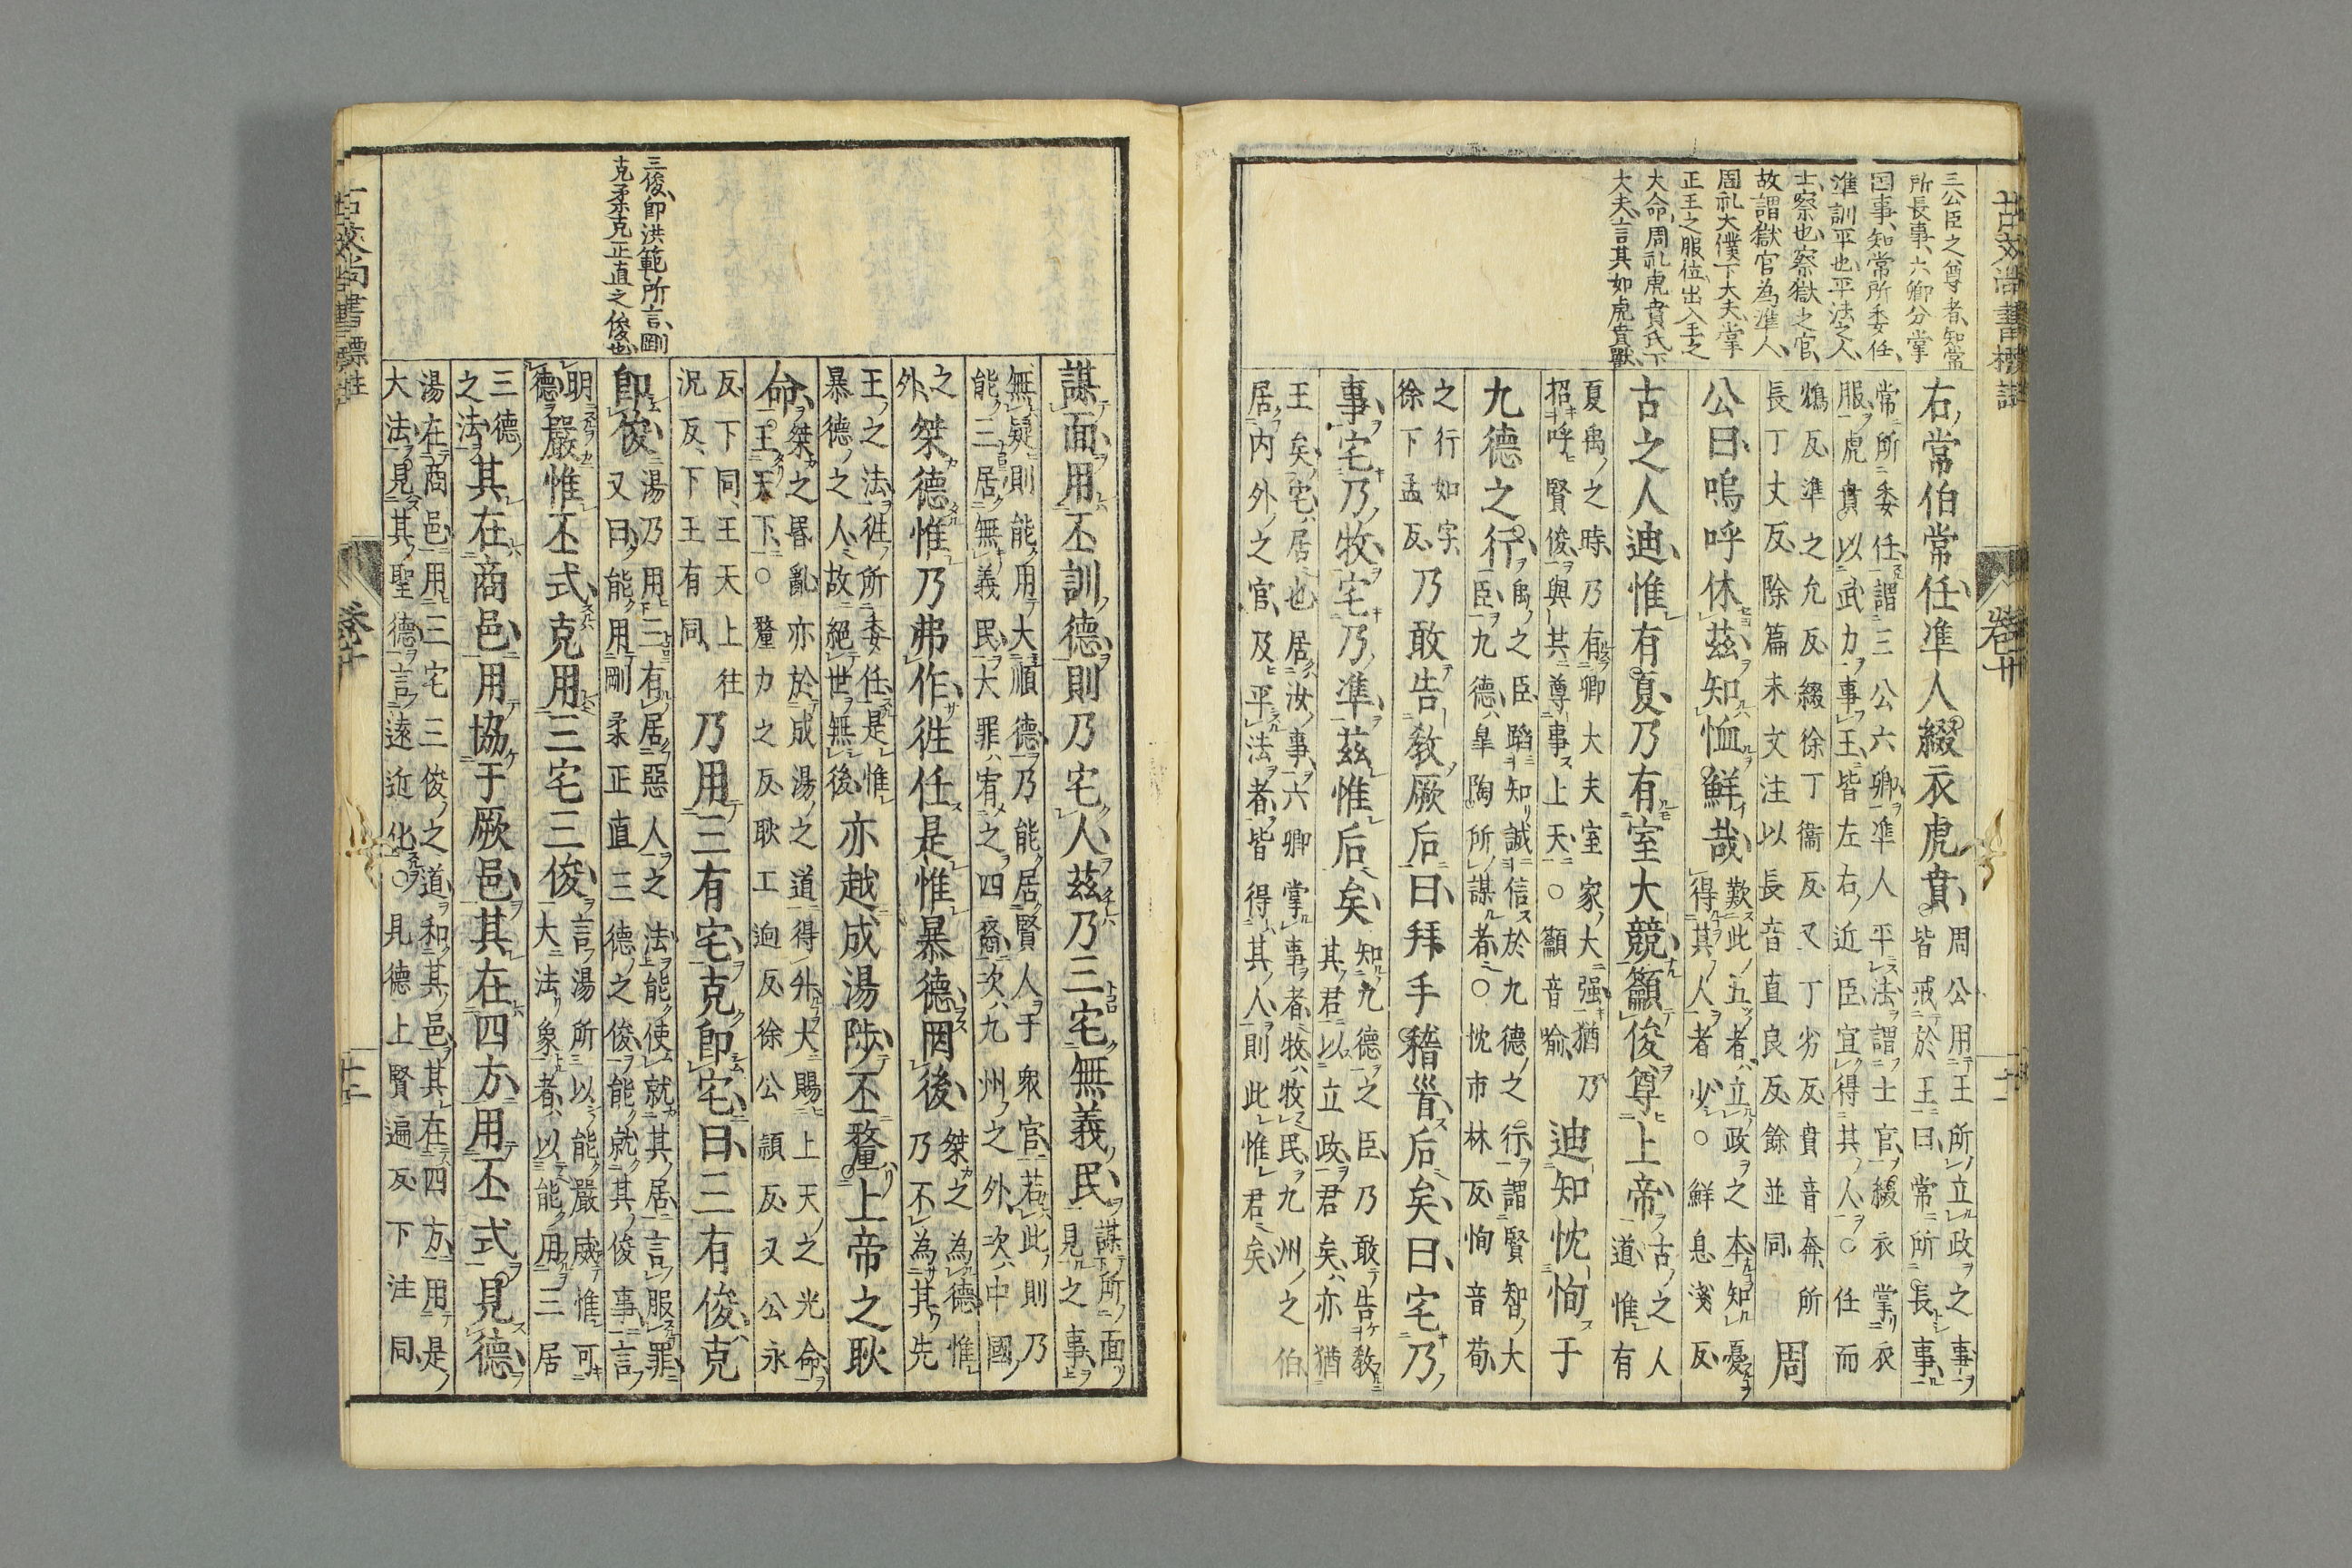 古文尚書標註
卷十
三公臣之尊者知常
所長事六卿分掌
国事知常所委任
準訓平也平法之人
士察也察獄之官
故謂獄官為準人
周礼大僕下大夫掌
正王之服位出入王之
大命周礼虎賁氏下
大夫言其如虎賁獸
右常伯常任準人綴衣虎賁
周公用王所立政之事
皆戒於王曰常所長事
常所委任謂三公六卿準人平法謂士官綴衣掌衣
服虎賁以武力事王皆左右近臣宜得其人○任而
鴆反準之允反綴徐丁衞反又丁劣反賁音奔所
長丁丈反除篇末文注以長音直良反餘並同
周
公曰嗚呼休茲知恤鮮哉
歎此五者立政之本知憂
得其人者少○鮮息淺反
古之人迪惟有夏乃有室大競籲俊尊上帝
古之人
道惟有
夏禹之時乃有卿大夫室家大强猶乃
招呼賢俊與其尊事上天○籲音喻
迪知忱恂于
九德之行
禹之臣蹈知誠信於九德之行謂賢智大
臣九德皐陶所謀者○忱市林反恂音荀
之行如字
徐下孟反
乃敢告教厥后曰拜手稽首后矣曰宅乃
事宅乃牧宅乃準茲惟后矣
知九德之臣乃敢告教
其君以立政君矣亦猶
王矣宅居也居汝事六卿掌事者牧牧民九洲之伯
居内外之官及平法者皆得其人則此惟君矣
三俊即洪範所言剛
克柔克正直之俊也
謀面用丕訓德則乃宅人茲乃三宅無義民
謀所面
見之事
無疑則能用大順德乃能居賢人于衆官若此則乃
能三居無義民大罪宥之四裔次九州之外次中國
之
外
桀德惟乃弗作往任是惟暴德罔後
桀之為德惟
乃不為其先
王之法往所委任是惟
暴德之人故絕世無後
亦越成湯陟丕釐上帝之耿
命
桀之昬亂亦於成湯之道得外大賜上天之光命
王天下○釐力之反耿工迥反徐公頴反又公永
反下同王天上往
況反下王有同
乃用三有宅克即宅曰三有俊克
即俊
湯乃用三有居惡人之法能使就其居言服罪
又曰能用剛柔正直三德之俊能就其俊事言
明
德
嚴惟丕式克用三宅三俊
言湯所以能嚴威惟可
大法象者以能用三居
三德
之法
其在商邑用協于厥邑其在四方用丕式見德
湯在商邑用三宅三俊之道和其邑其在四方用是
大法見其聖德言遠近化○見德上賢遍反下注同
古文尚書標註
卷十
十二